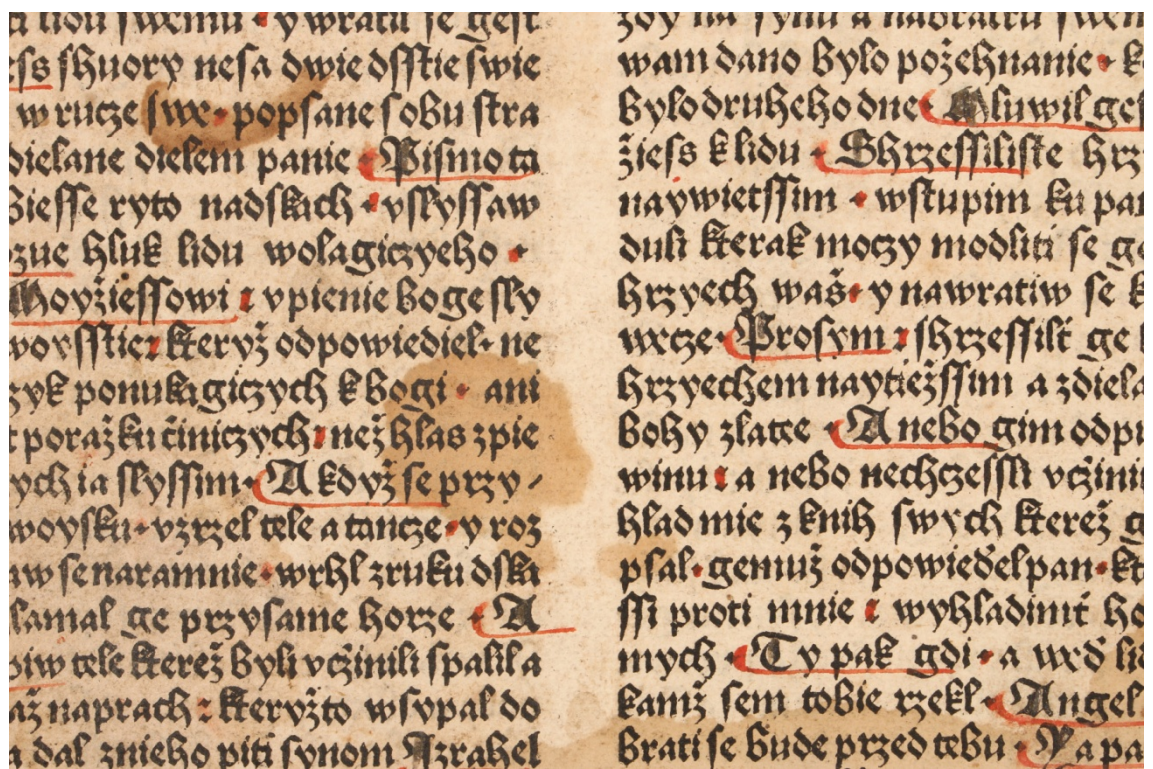 lidu ſwemu · y wratil ſe geſt
ſhuory neſa dwie dſſtie ſwie
w rucze ſwe · popſane ſobu ſtra
dielane dielem panie · Piſmo ta
Bieſſe ryto nadſkach · vſlyſſaw
zue hluk lidu wolagiczyeho ·
Moyžieſſowi : vpienie boge ſly
woyſſtie : kteryž odpowiediel · ne
zyk ponukagiczych k bogi · ani
poražku činiczych : než hlas zpie
ych ia ſlyſſim · A když ſe przy⸗
woyſku · vzrzel tele a tancze · y roz
aw ſe naramnie · wrhl z ruku dſka
lamal ge przy ſame horze · A
tele kterež byli včinili ſpalil a
až naprach : kteryžto wſypal do
a dal z nieho piti ſynom Izrahel
wam dano bylo požehnanie ·
bylo druheho dne · Mluwil geſ
žieſs k lidu · Shrzeſſiliſte hrz
naywietſſim · wſtupim ku pa
duſi kterak moczy modliti ſe ge
hrzyech waš · y nawratiw ſe k
wece · Proſym : ſhrzeſſilť ge
hrzyechem naytiežſſim a zdiela
bohy zlatee · A nebo gim odpu
winu : a nebo nechczeſſli včinii
hlad mie z knih ſwych kterež
pſal · gemuž odpowieďel pan · kt
ſſi proti mnie : wyhladimť ho
mych · Ty pak gdi · a weď lid
kamž ſem tobie rzekl · Angel
brati ſe bude przed tebu · Ya pa